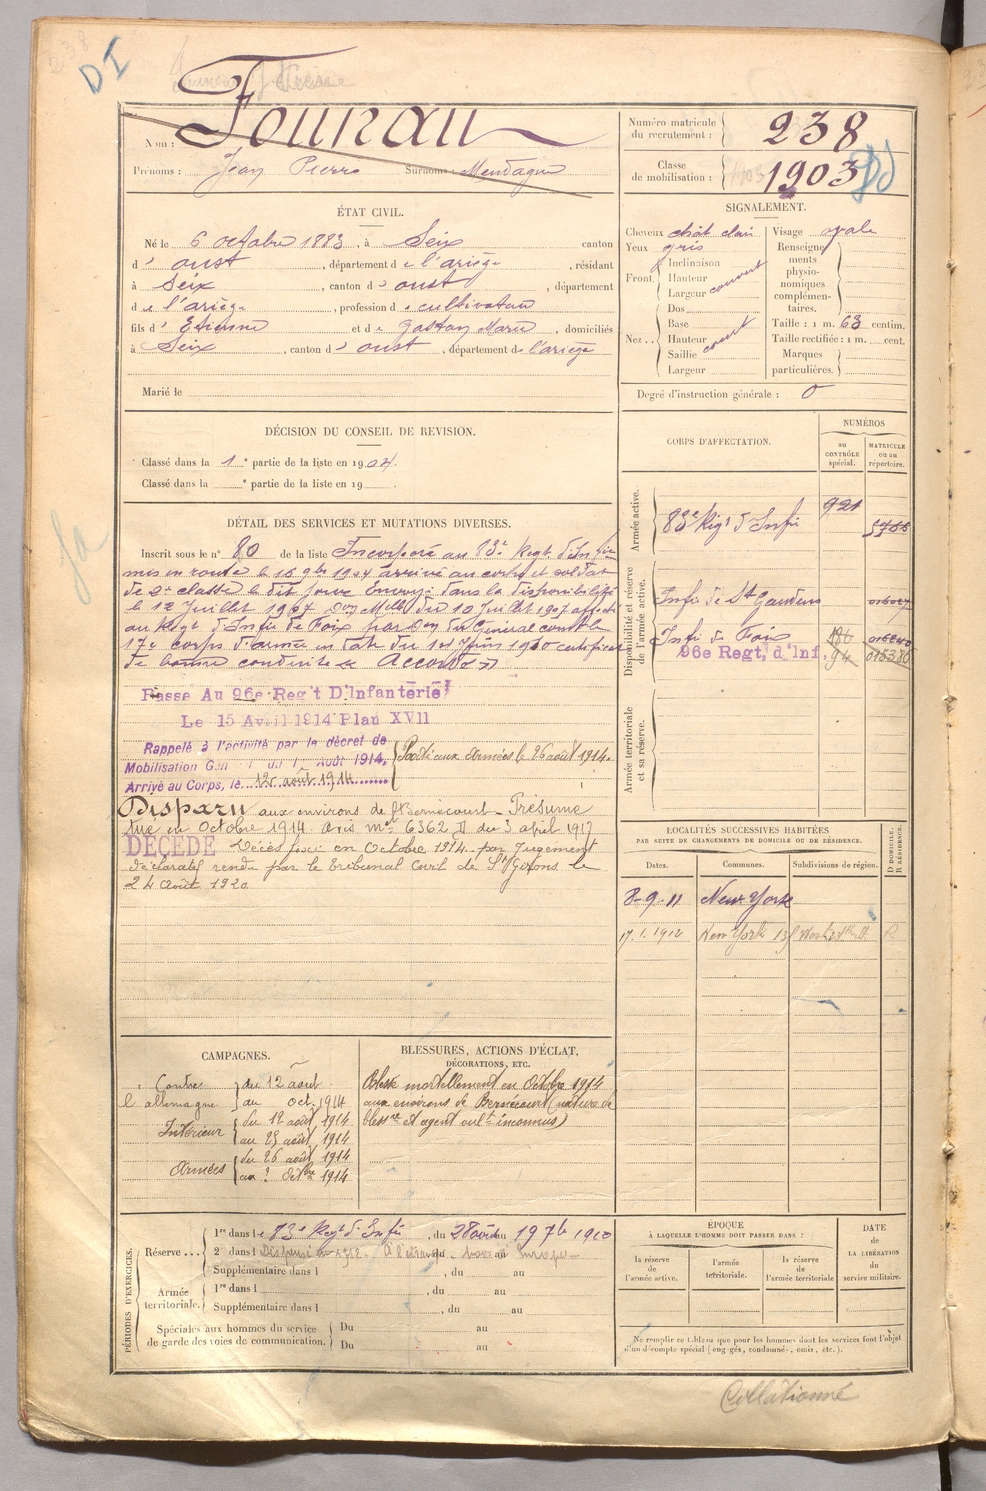 238
DI
Nom : Founau
Prénoms : Jean Pierre Surnoms : Mendagne
Numéro matricule du recrutement : 238
Classe de mobilisation : 1903
ÉTAT CIVIL.
Né le 6 octobre 1883, à Seix canton
d' oust, département de l'ariège, résidant
à Seix, canton d' oust, département
de l'ariège, profession de cultivateur
fils d' Etienne et de Gaston Marie, domiciliés
à Seix, canton d' oust, département de l'ariège
Marié le
SIGNALEMENT.
Cheveux chât clair
Yeux gris
Front. Inclinaison
Hauteur
Largeur
couvert
Nez.. Dos
Base
Hauteur
Saillie
Largeur
court
Visage ovale
Renseignements physionomiques complémentaires.
Taille : 1 m. 63 centim.
Taille rectifiée : 1 m. cent.
Marques particulières.
Degré d'instruction générale : 0
DÉCISION DU CONSEIL DE REVISION.
Classé dans la 1e partie de la liste en 1904.
Classé dans la e partie de la liste en 19 .
DÉTAIL DES SERVICES ET MUTATIONS DIVERSES.
Inscrit sous le n° 80 de la liste Incorporé au 83e Regt d'Infie
mis en route le 16 9bre 1904 arrivé au corps et soldat
de 2e classe le dit jour Envoyé dans la disponibilité
le 12 Juillet 1907 Don Melle du 10 Juillet 1907 affecté
au Regt d'Infie de Foix par Don du Général comdt le
17e corps d'armée en date du 1er Juin 1910 certificat
de bonne conduite « Accordé »
Passé Au 96e Reg't D'Infanterie
Le 15 Avril 1914 Plan XVII
Rappelé à l'activité par le décret de
Mobilisation Gen du 1 Août 1914.
Arrivé au Corps, le 12 août 1914
Parti aux Armées le 26 août 1914.
Disparu aux environs de Bernécourt - Présumé
tué en Octobre 1914. avis mel 6362 D du 3 april 1917
DÉCÉDÉ Décès fixé en Octobre 1914 par Jugement
déclaratif rendu par le tribunal Civil de St Girons le
24 Août 1920.
CORPS D'AFFECTATION.
NUMÉROS
au CONTRÔLE spécial.
MATRICULE ou au répertoire.
Armée active.
83e Regt d'Infie 921
Disponibilité et réserve de l'armée active.
Infie de St Gaudens
Infie de Foix
96e Regt, d'Inf. 94
Armée territoriale et sa réserve.
LOCALITÉS SUCCESSIVES HABITÉES
PAR SUITE DE CHANGEMENTS DE DOMICILE OU DE RÉSIDENCE.
Dates. Communes. Subdivisions de région. D. DOMICILE. R. RÉSIDENCE.
8-9-11 New-York
17.1.1912 New York R
CAMPAGNES.
Contre l'allemagne
du 12 août
au Oct. 1914
Intérieur
du 12 août 1914
au 25 août 1914
Armées
du 26 août 1914
au ? Octbre 1914
BLESSURES, ACTIONS D'ÉCLAT, DÉCORATIONS, ETC.
Blessé mortellement en Octobre 1914
aux environs de Bernécourt (nature de
blessre et agent vult inconnus)
PÉRIODES D'EXERCICES.
Réserve... 1re dans le 83e Regt d'Infie, du 28 août au 19 7bre 1910
2e dans l Dispensé
Supplémentaire dans l , du au
Armée territoriale. 1re dans l , du au
Supplémentaire dans l , du au
Spéciales aux hommes du service de garde des voies de communication.
Du au
Du au
ÉPOQUE
À LAQUELLE L'HOMME DOIT PASSER DANS :
la réserve de l'armée active.
l'armée territoriale.
la réserve de l'armée territoriale
DATE DE LA LIBÉRATION du service militaire.
Ne remplir ce tableau que pour les hommes dont les services font l'objet
d'un décompte spécial (engagés, condamnés, omis, etc.).
Collationné